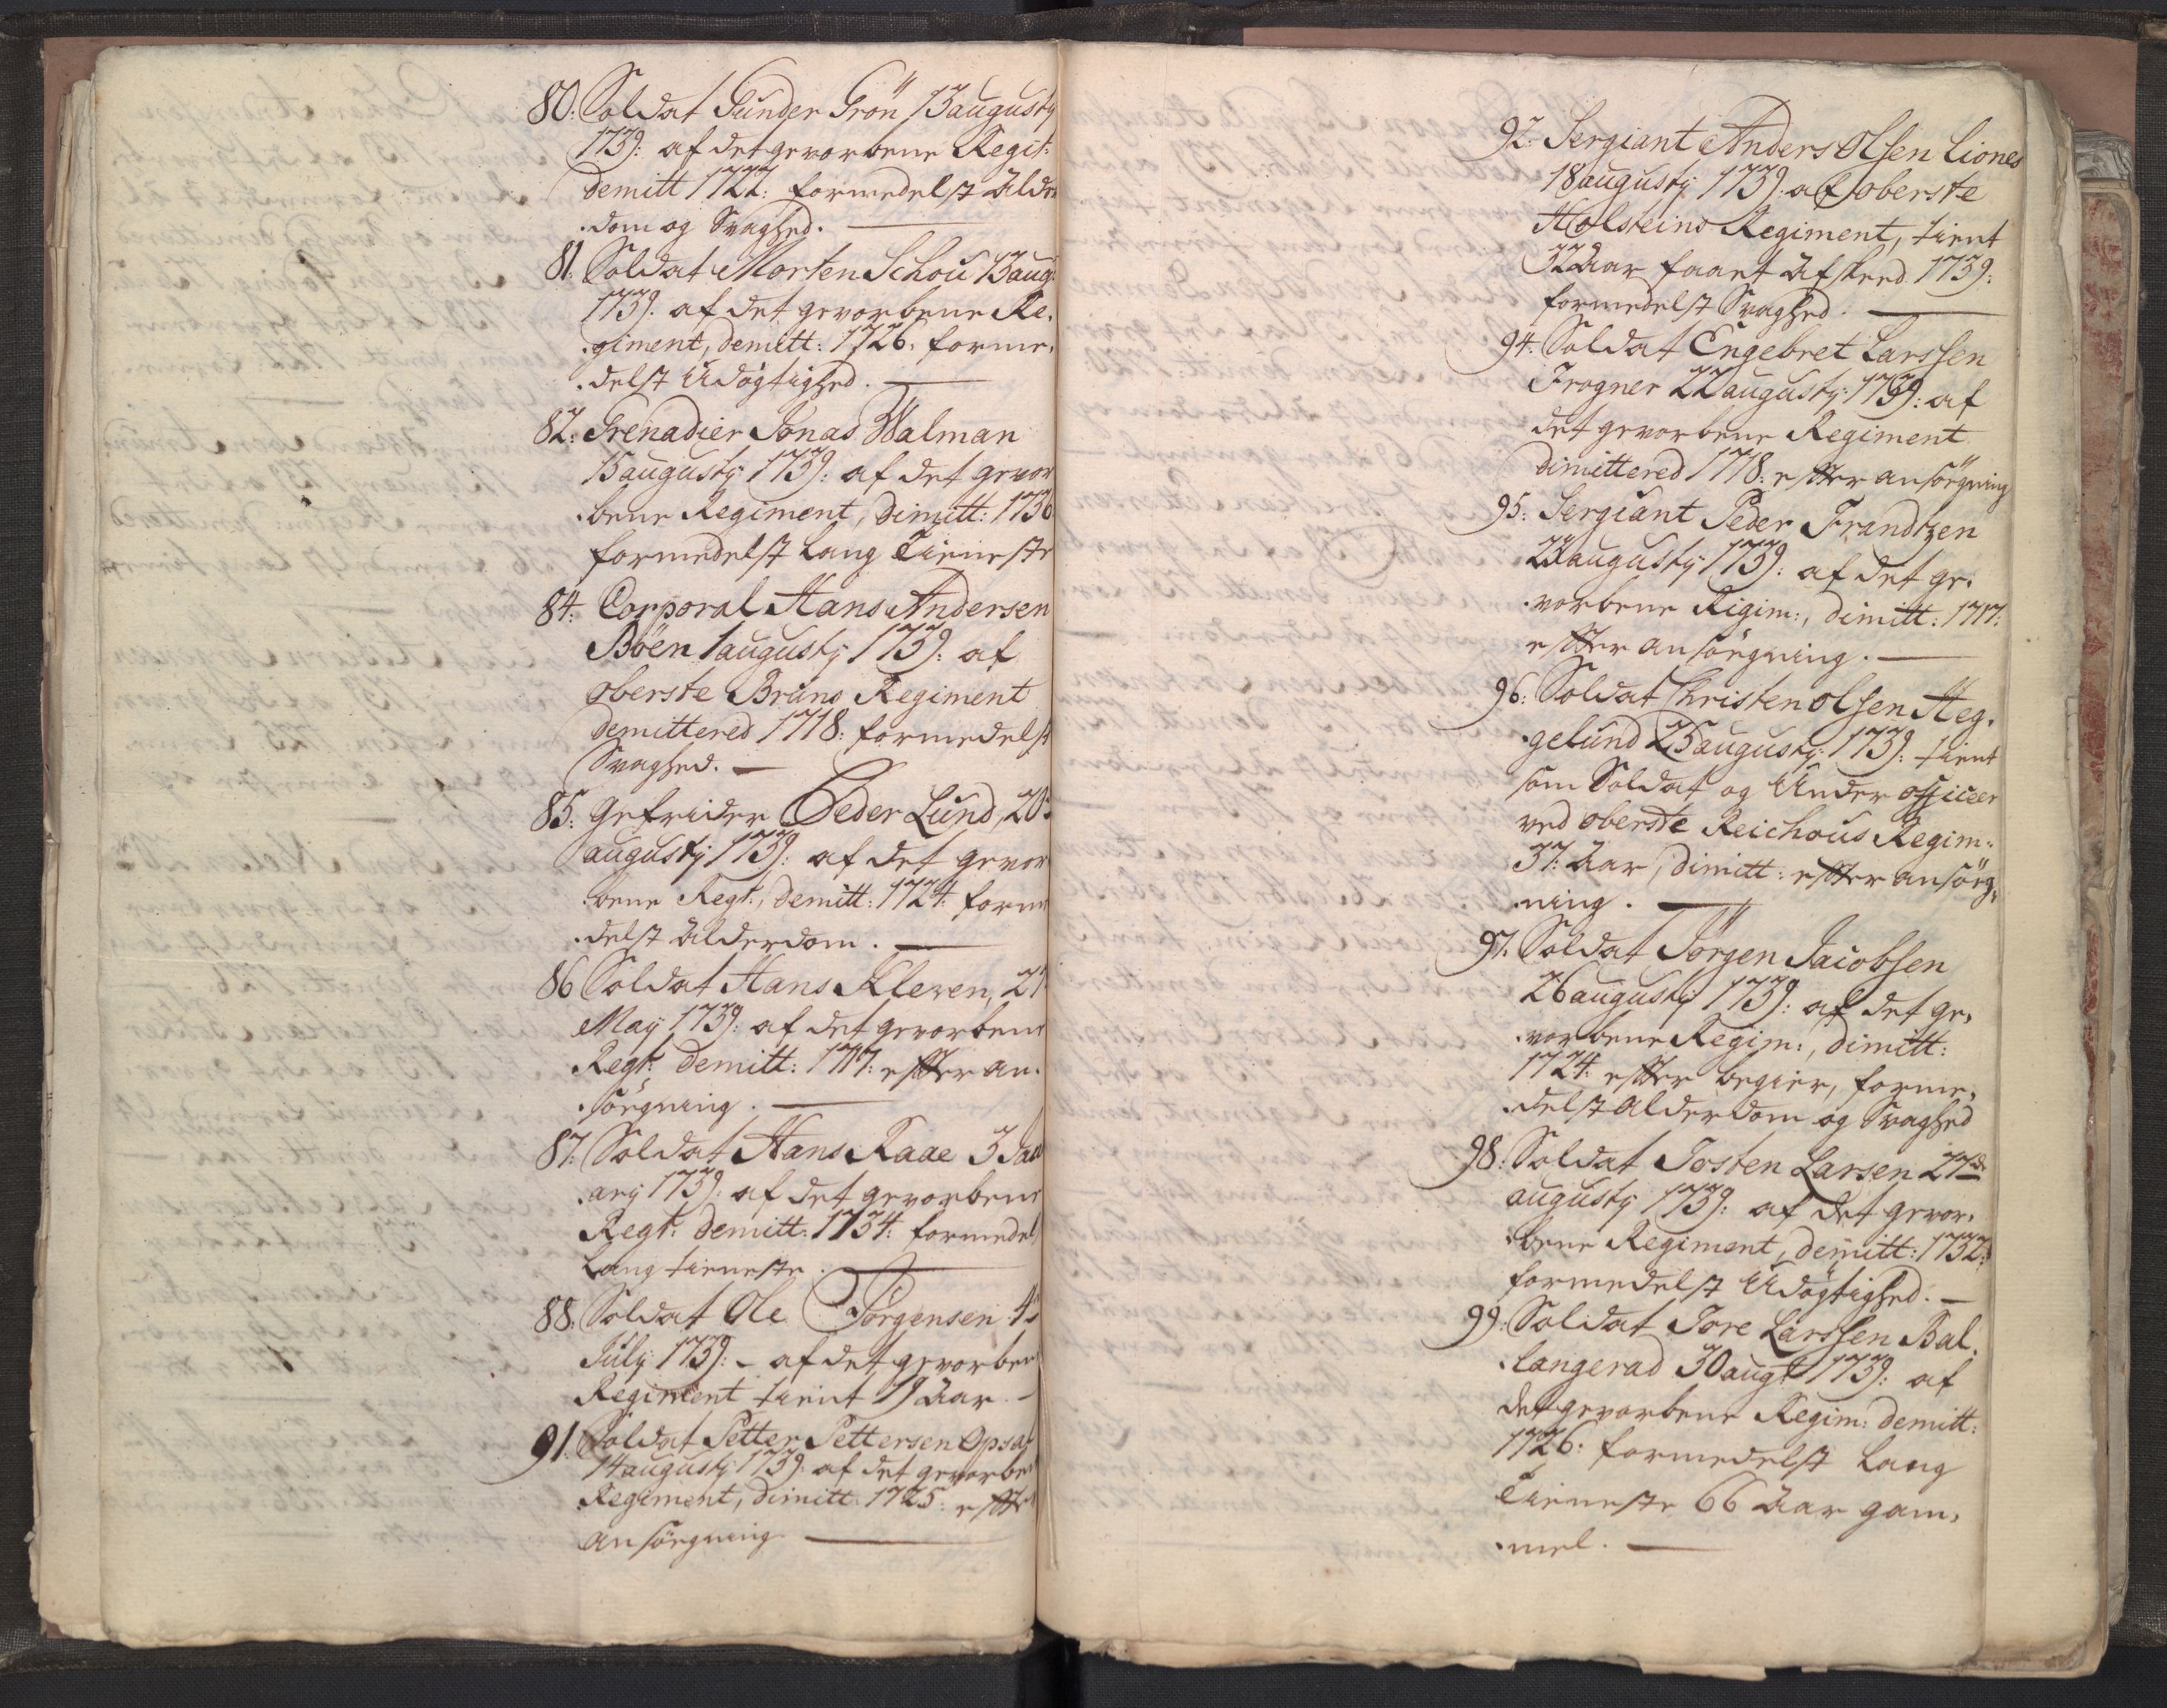 80: Soldat Gunder Grön 13 augusty
1739: af det gevorbene Regit:
demitt 1722: formedelst Alder
dom og Svaghed.
81. Soldat Morten Schou 13 aug:
1739: af det gevorbene Re,
giment, demitt: 1726: forme,
delst Udögtighed.
82: Grenadier Jonas Walman
15 augusty 1739: af det gevor
bene Regiment, dimitt: 1736
formedelst Lang Tieneste
84: Corporal Hans Andersen
Böen 1 augusty 1739: af
oberste Bruns Regiment
demittered 1718: formedelst
Svaghed.
85: Gefrider Peder Lund, 20
augusty 1739: af det gevor
bene Regt:, demitt: 1724: forme
delst Alderdom.
86 Soldat Hans Kleven, 21
May 1739: af det gevorbene
Regt: demitt: 1717: effter an,
sörgning.
87. Soldat Hans Raae 3 Janu
ary 1739: af det gevorbene
Regt: demitt: 1734: formedel
Lang tieneste.
88. Soldat Ole Jörgensen 4
July 1739: - af det gevorben
Regiment tient 19 Aar. -
91. Soldat Petter Pettersen Opsa
14 augusty 1739: af det gevorbe
Regiment, dimitt: 1725: effter
ansörgning
92: Sergiant Anders Olsen Liones
18 augusty 1739: af oberste
Holsteins Regiment, tient
32 Aar faaet Afskeed 1739:
formedelst Svaghed.
94: Soldat Engebret Larssen
Frogner 22 augusty 1739: af
det gevorbene Regiment
dimittered 1718: effter ansörgning
95: Sergiant Peder Frandtzen
23 augusty 1739: af det ge,
vorbene Rigim:, dimitt: 1717:
effter ansörgning.
96: Soldat Christen Olsen Heg,
gelund 25 augusty 1739: tient
som Soldat og Under officeer
ved oberste Reichous Regim:
37: Aar, dimitt: effter ansörg,
ning.
97. Soldat Jörgen Jacobsen
26 augusty 1739: af det ge,
vorbene Regim:, dimitt:
1724: effter begier, forme,
delst Alderdom og Svaghed
98: Soldat Josten Larsen 27de
augusty 1739: af det gevor,
bene Regiment, demitt: 1732:
formedelst Udögtighed. -
99: Soldat Tore Larssen Bal,
langerad 30 augt 1739: af
det gevorbene Regim: demitt:
1726: formedelst Lang
Tieneste 66 Aar gam,
mel.